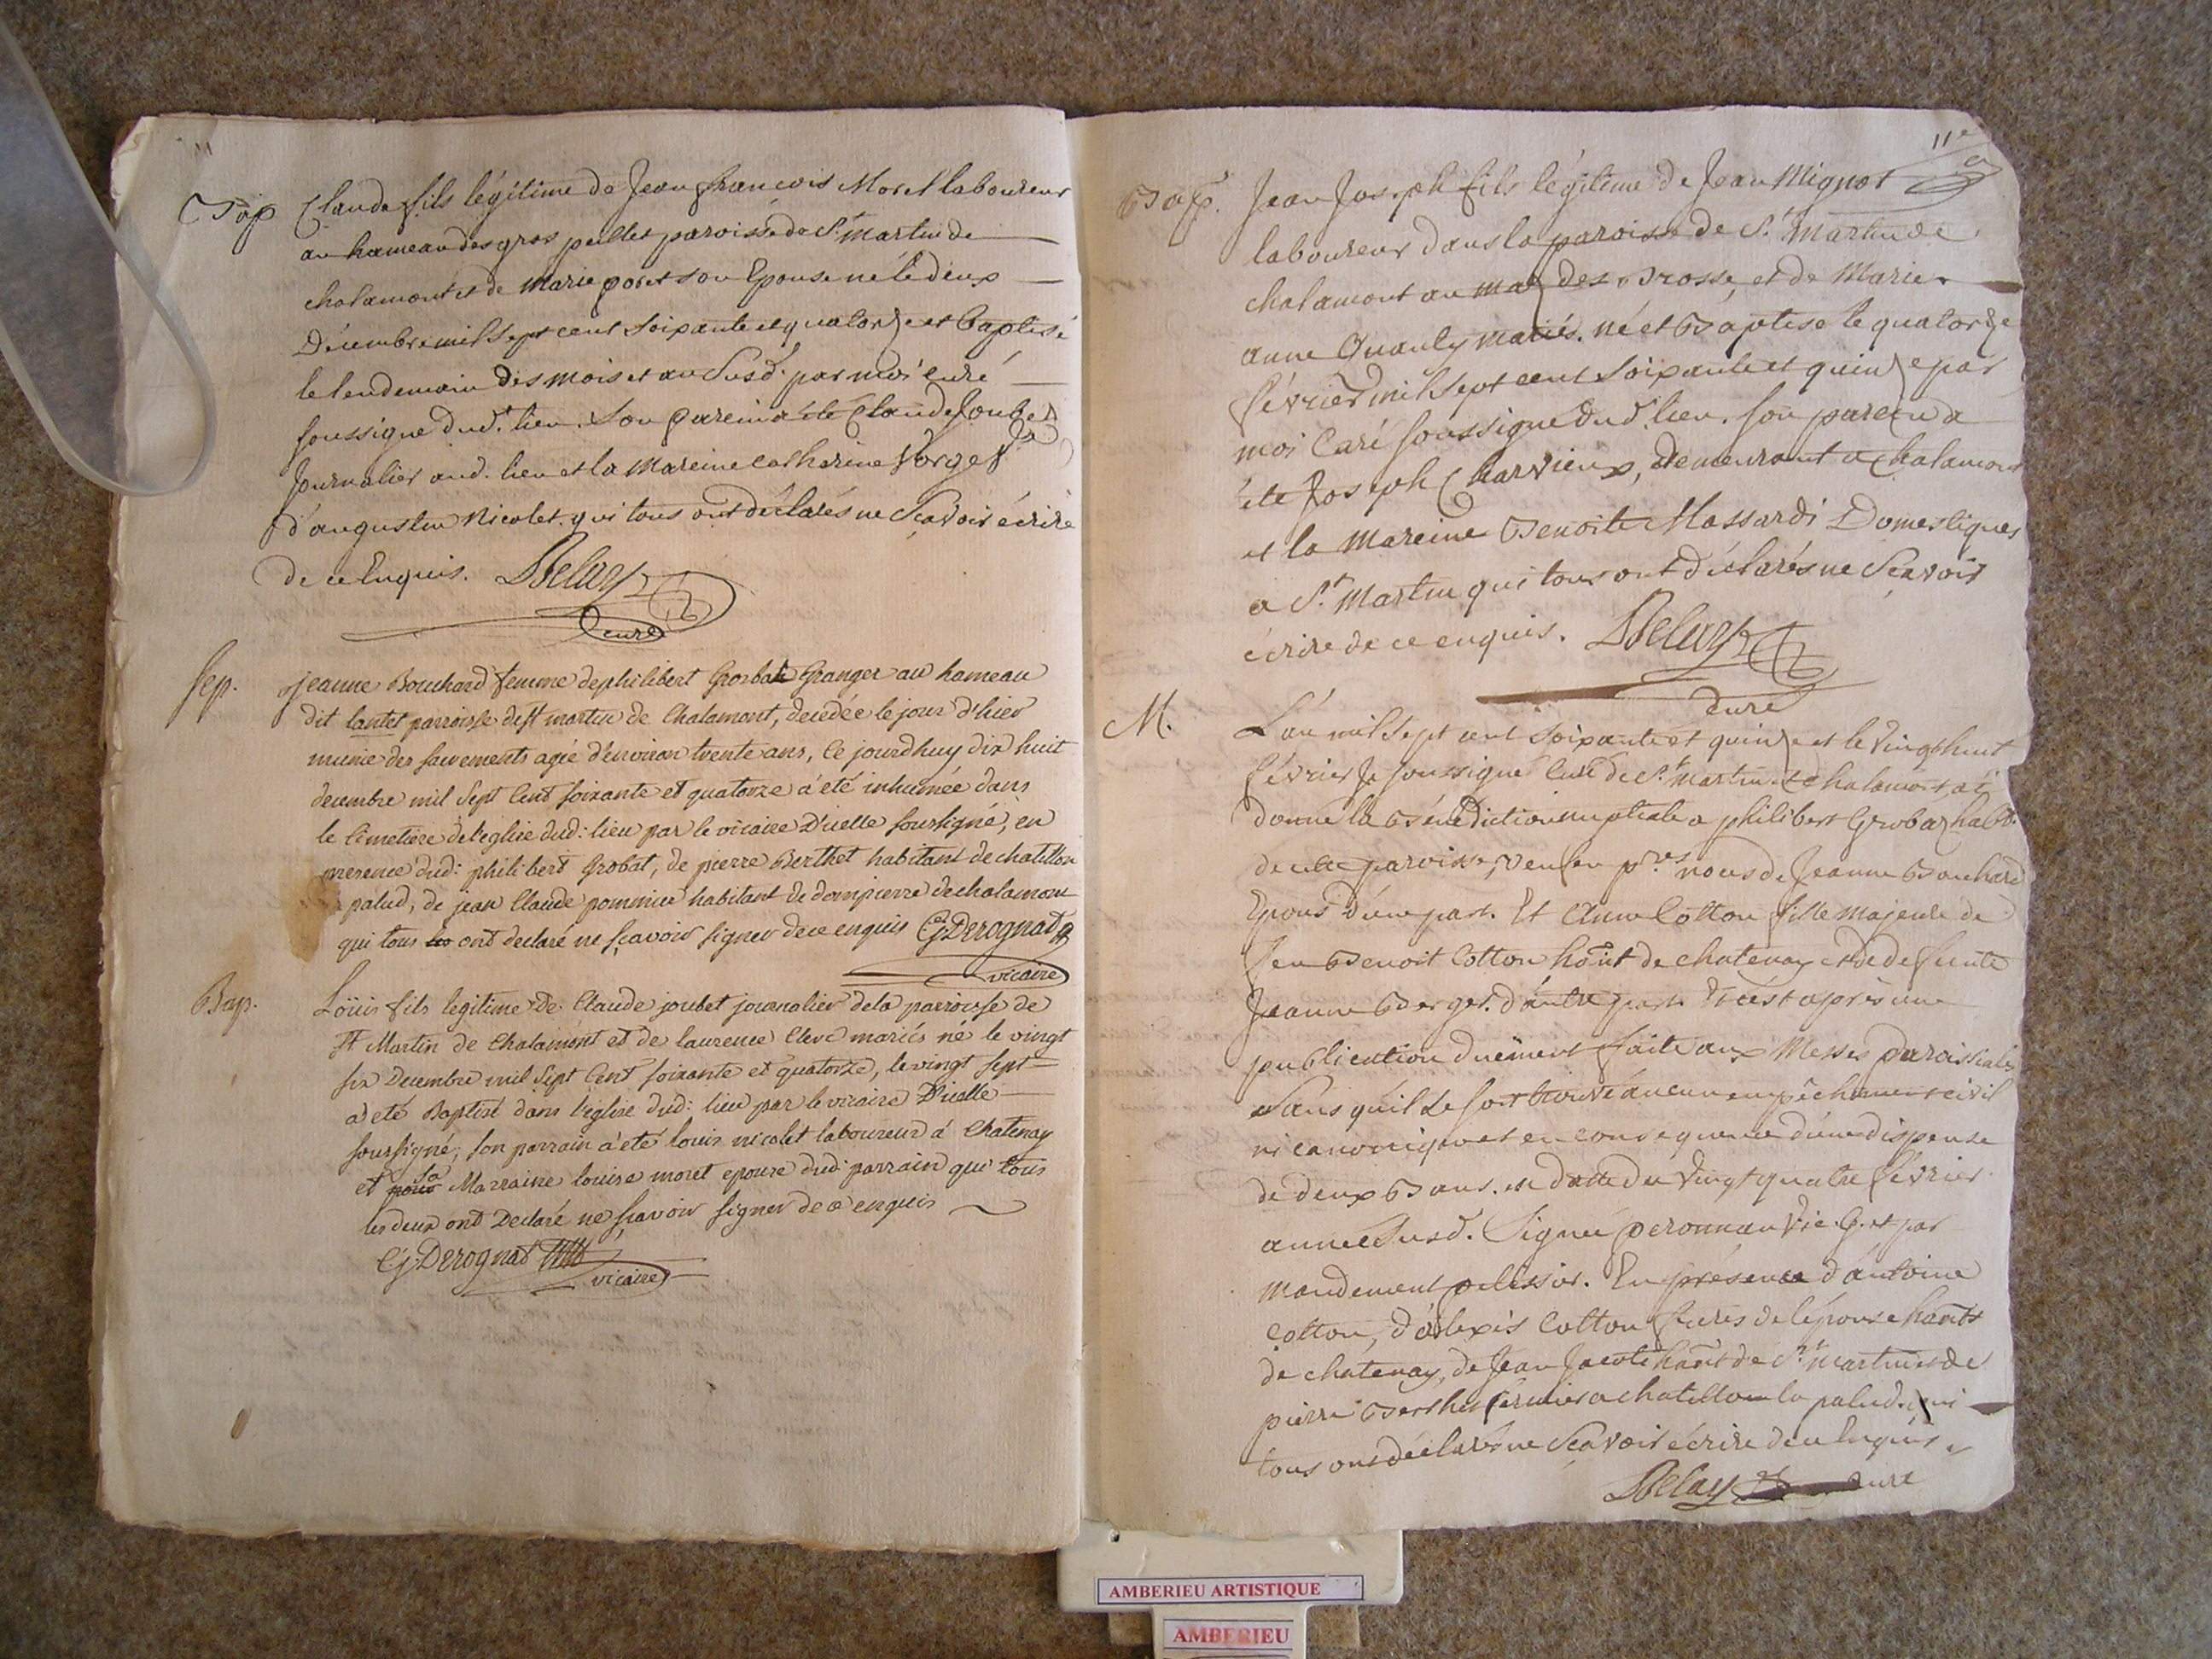 Bap Claude fils légitime de Jean francois Morel laboureur
au hameau des gros peillet paroisse de St martin de
chalamont et de Marie poret son Epouse né le deux
Décembre mil sept cent soixante et quatorze et baptisé
le lendemain des mois et an susd. par moi curé
soussigné dud. lieu. Son parein a été Claude Joubet
Journalier aud. lieu et la Mareine catherine Vorget
d'augustin Nicolet. qui tous ont déclarés ne Scavoir écrire
de ce Enquis. Delay
curé
Sep. jeanne Bouchard femme de philibert Grobat Granger au hameau
dit lantet parroisse de st martin de Chalamont, decedée le jour d'hier
munie des sacrements agée d'environ trente ans, Ce jourdhuy dix huit
decembre mil Sept Cent soixante et quatorze a été inhumée dans
le Cimetiere de l'eglise dud: lieu par le vicaire D'icelle soussigné, en
presence dud: philibert Grobat, de pierre Berthet habitant de chatillon
palud, de jean Claude pommier habitant de dompierre de chalamont
qui tous ont declaré ne sçavoir signer de ce enquis CJ. Derognat
vicaire
Bap. Loüis fils legitime de Claude joubet journalier de la parroisse de
St Martin de Chalamont et de laurence Clerc mariés né le vingt
six Decembre mil Sept Cent soixante et quatorze, le vingt sept
a eté Baptisé dans l'eglise dud: lieu par le vicaire D'icelle
soussigné, son parrain a eté louis nicolet laboureur à Chatenay
et la Marraine louise moret epouse dud: parrain qui tous
les deux ont Declaré ne sçavoir signer de ce enquis
CJ. Derognat
vicaire
11e
Bap. Jean Joseph fils légitime de Jean Mignot
laboureur dans la paroisse de St. Martin de
chalamont au mas des Brosse, et de Marie
anne mariés. né et Baptisé le quatorze
février mil sept cent soixante et quinze par
moi Curé soussigné dud. lieu. son parein a
été Joseph Charvieux, demeurant a chalamont
et la Mareine Benoite Massardi Domestiques
a St. Martin qui tous ont déclarés ne Scavoir
écrire de ce enquis. Delay
curé
M. L'an mil sept cent soixante et quinze et le vingt huit
février Je soussigné Curé de St. martin de Chalamont, ai
donné la Bénédiction nuptiale a philibert Grobaz habt.
de cette paroisse, veuf en pres. nous de Jeanne Bouchard
Epoux d'une part. Et Anne Cotton fille majeure de
feu Benoit Cotton hant de chatenay et de defunte
Jeanne Berger. d'autre part. Et c'est après une
publication duement faite aux Messes paroissiales
Sans qu'il se soit trouvé aucun empêchement civil
ni canonique et en consequence d'une dispense
de deux Bans. en datte du vingt quatre février
année susd. Signée peronneau vic. G. et par
mandement pelissier. En présence d'antoine
Cotton, d'alexis Cotton freres de l'épouse hants
de chatenay, de Jean Jacote hant de St. martin et de
pierre Berthet fermier a chatillon la palud. qui
tous ont déclarés ne Scavoir écrire de ce Enquis.
Delay curé
AMBERIEU ARTISTIQUE
AMBERIEU